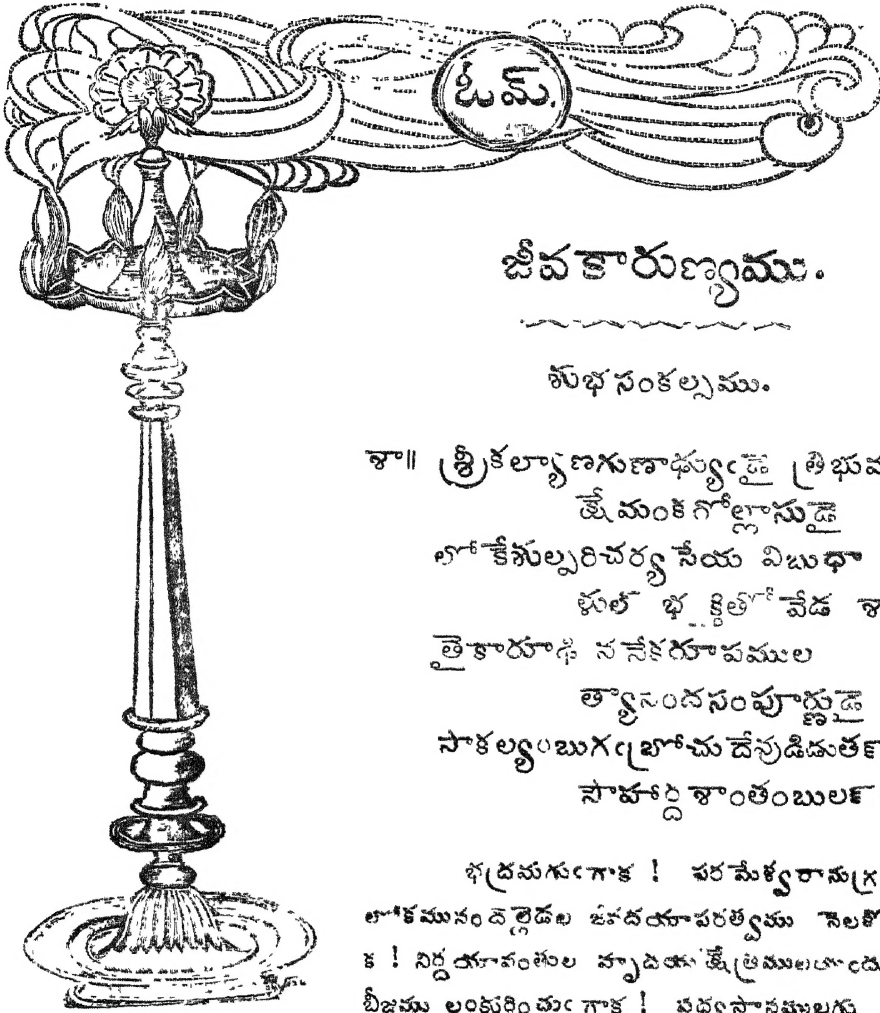 ఓమ్.
జీవకారుణ్యము.
శుభసంకల్పము.
శా॥ శ్రీకల్యాణగుణాఢ్యుఁడై త్రిభువ
క్షేమంకరోల్లాసుడై
లోకేశుల్పరిచర్య సేయ విబుధా
ళుల్ భక్తితో వేడ శా
నేకరూపముల
త్యానందసంపూర్ణుడై
సాకల్యంబుగఁబ్రోచు దేవుడిడుతన్
సౌహార్ద శాంతంబులన్
భద్రమగుఁగాక ! పరమేశ్వరానుగ్ర
లోకమునందెల్లెడల జీవదయాపరత్వము నెలకొ
క ! నిర్దయావంతుల హృదయ క్షేత్రములయందు
బీజము లంకురించుఁ గాక !